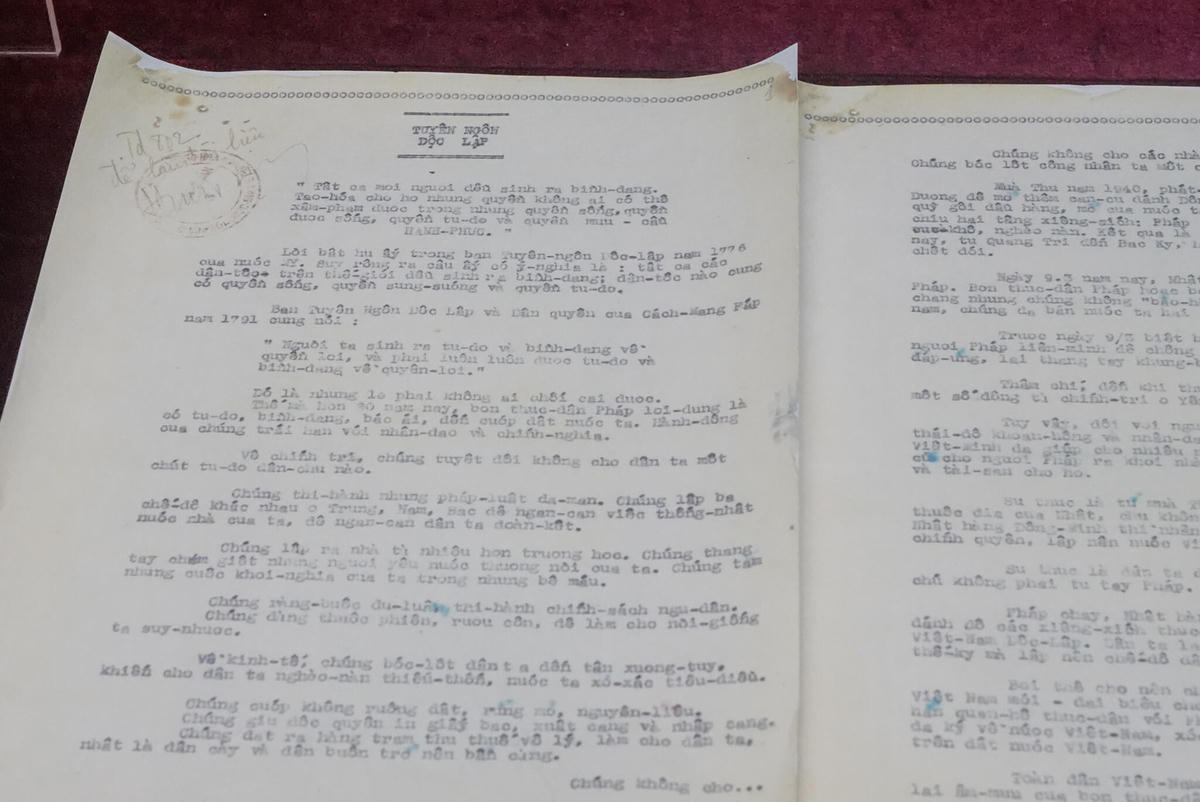 TUYÊN NGÔN
DỘC LẬP
" Tât ca mọi nguoi dêu sinh ra binh-dang.
Tạo-hóa cho họ nhung quyên không ai có thê
xâm-phạm duoc trong nhung quyên sông, quyên
duoc sông, quyên tu-do và quyên muu - câu
HẠNH-PHUC. "
Lòi bât hu ây trong ban Tuyên-ngôn Dôc-lâp nam 1776
của nuoc Mỹ. Suy rộng ra câu ấy có ý-nghia là : tât ca các
dân-tôc trên thê-gioi dêu sinh ra binh-dang; dân-tôc nào cung
có quyên sông, quyên sung-suóng và quyên tu-do.
Ban Tuyên Ngôn Dôc Lâp và Dân quyên cua Cách-Mang Páp
nam 1791 cung nói :
" Nguoi ta sinh ra tu-do và binh-dang vê
quyên loi, và phai luôn luôn duoc tu-do và
binh-dang vê quyên-loi."
Dó là nhung le phai không ai chôi cai duoc.
Thê mà hon 80 nam nay, bon thuc-dân Pháp loi-dung lá
có tu-do, binh-dang, bác ái, dên cuóp dât nuóc ta. Hành-dông
cua chúng trái han vói nhân-dao và chính-nghia.
Vê chính trị, chúng tuyêt dôi không cho dân ta môt
chút tu-do dân-chu nào.
Chúng thi-hành nhung pháp-luât da-man. Chúng lâp ba
chê-dô khác nhau o Trung, Nam, Bac dê ngan-can viêc thông-nhât
nuóc nhà cua ta, dê ngan-can dân ta doàn-kêt.
Chúng lâp ra nhà tù nhiêu hon truong hoc. Chúng thang
tay chém giêt nhung nguoi yêu nuóc thuong nòi cua ta. Chúng tám
nhung cuôc khoi-nghia cua ta trong nhung bê máu.
Chúng ràng-buôc du-luân, thi-hành chính-sách ngu-dân.
Chúng dùng thuôc phiên, ruou côn, dê làm cho nòi-giông
ta suy-nhuoc.
Vê kinh-tê, chúng bóc-lôt dân ta dên tân xuong-tuy,
khiên cho dân ta nghèo-nàn thiêu-thôn, nuóc ta xo-xác tiêu-diêu.
Chúng cuóp không ruông dât, rùng mỏ, nguyên-liêu.
Chúng giu dôc quyên in giây bac, xuât cang và nhâp cang.
Chúng dat ra hàng tram thu thuê vô lý, làm cho dân ta,
nhât là dân cày và dân buôn tro nên bân cùng.
Chúng không cho...
Chúng không cho các nhà
Chúng bóc lôt công nhân ta môt
Mùa Thu nam 1940, phát
Duong dê mo thêm can-cu dánh Dôn
quỳ gôi dâu hàng, mo cua nuóc
chiu hai tâng xiêng-xiêh: Pháp
cuc-khô, nghèo nàn. Kêt qua là
nay, tu quang Tri dên Bac Ky,
chêt dói.
Ngày 9.3 nam nay, Nhât
Pháp. Bon thuc-dân Pháp hoac
chang nhung chúng không "bao
nam, chúng da bán nuóc ta hai
Truoc ngày 9/3 biêt
nguoi Pháp liên-minh dê chông
dáp-ung, lai thang tay khung
Thâm chí, dên khi
môt sô dông tù chính-tri o Yên
Tuy vây, dôi voi
thái-dô khoan-hông và nhân-dao
Viêt-minh da giúp cho nhiêu
cho nguoi Pháp ra khoi
và tài-san cho ho.
Su thuc là tu mùa
thuôc dia cua Nhât, chu không
Nhât hàng Dông-minh thì nhân
chính quyên, lâp nên nuóc
Su thuc là dân ta
chú không phai tu tay Pháp.
Pháp chay, Nhât hàng
dánh dô các xiêng-xiêh
Viêt-Nam Dôc-Lâp. Dân ta
thê-ky mà lâp nên chê-dô
Boi thê cho nên
Viêt Nam mói - dai biêu
quan-hê thuc-dân vói
da ký vê nuóc Viêt-Nam,
trên dât nuóc Viêt-Nam.
Toàn dân Viêt-Nam
lai âm-muu cua bon thuc